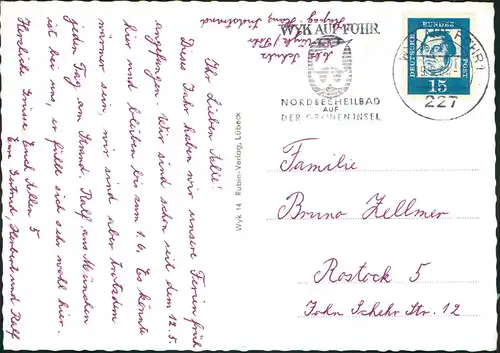 Ihr Lieben Alle!
Diess Jahr haben wir unsere Ferien früh
angefangen. Wir sind schon seit dem 12.5.
hier und bleiben bis zum 1.6. Es könnte
wärmer sein, wir sind aber trotzdem
jeden Tag am Strand. Ralf, aus München
ist bei uns, er fühlt sich sehr wohl hier.
Herzliche Grüsse Euch Allen 5
Eure Gertrud, Herbert und Ralf
Abs. Schulz
Wyk / Föhr
Haus Südstrand
WYK AUF FÖHR
NORDSEEHEILBAD
AUF
DER GRÜNEN INSEL
DEUTSCHE
BUNDES
POST
15
WYK AUF FÖHR 1
227
Wyk 14 Rubin-Verlag, Lübeck
Familie
Bruno Zellmer
Rostock 5
John Schehr Str. 12